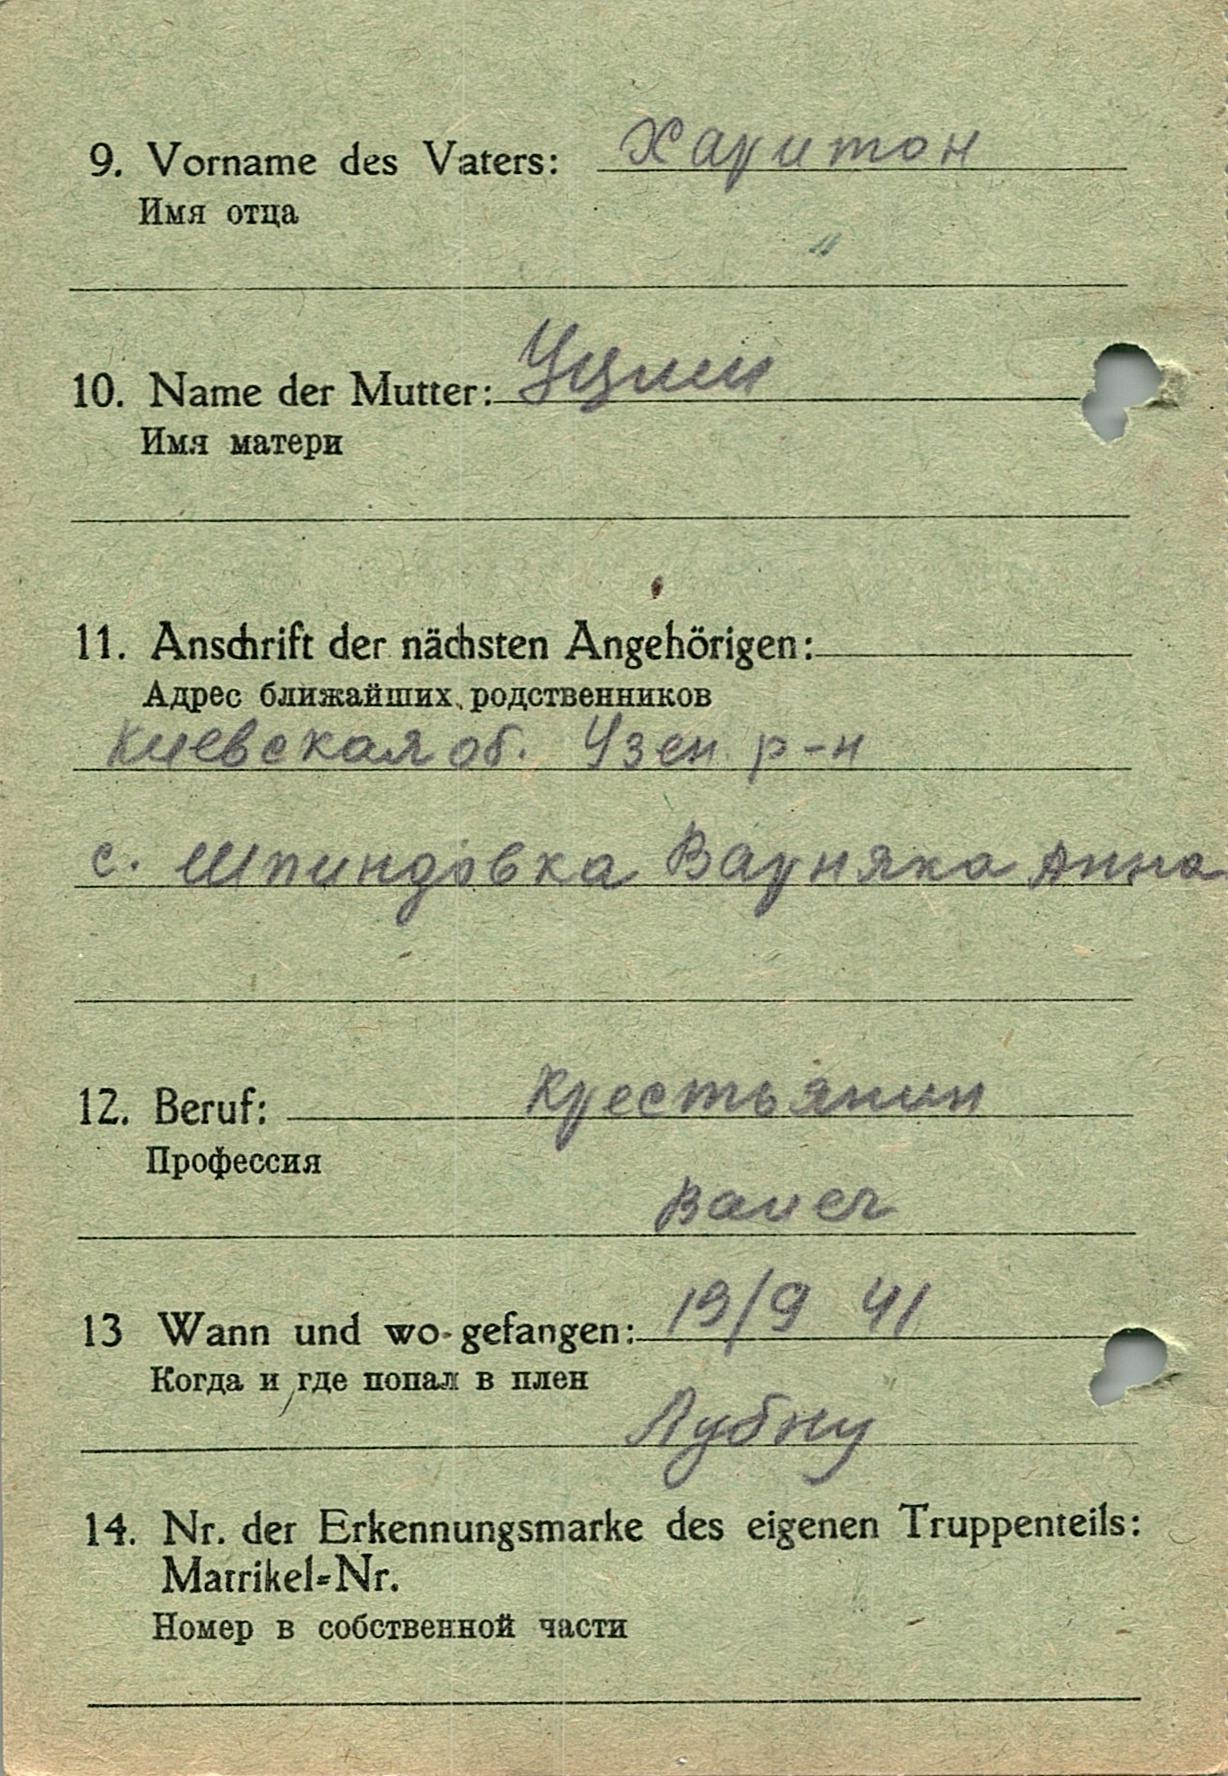 9. Vorname des Vaters: Харитон
Имя отца
"
10. Name der Mutter:
Имя матери
11. Anschrift der nächsten Angehörigen:
Адрес ближайших родственников
Киевская об. Узен р-н
с. Шпиндовка Варняка Анна
12. Beruf: Крестьянин
Профессия
Bauer
13 Wann und wo gefangen: 19/9 41
Когда и где попал в плен
Лубну
14. Nr. der Erkennungsmarke des eigenen Truppenteils:
Matrikel=Nr.
Номер в собственной части